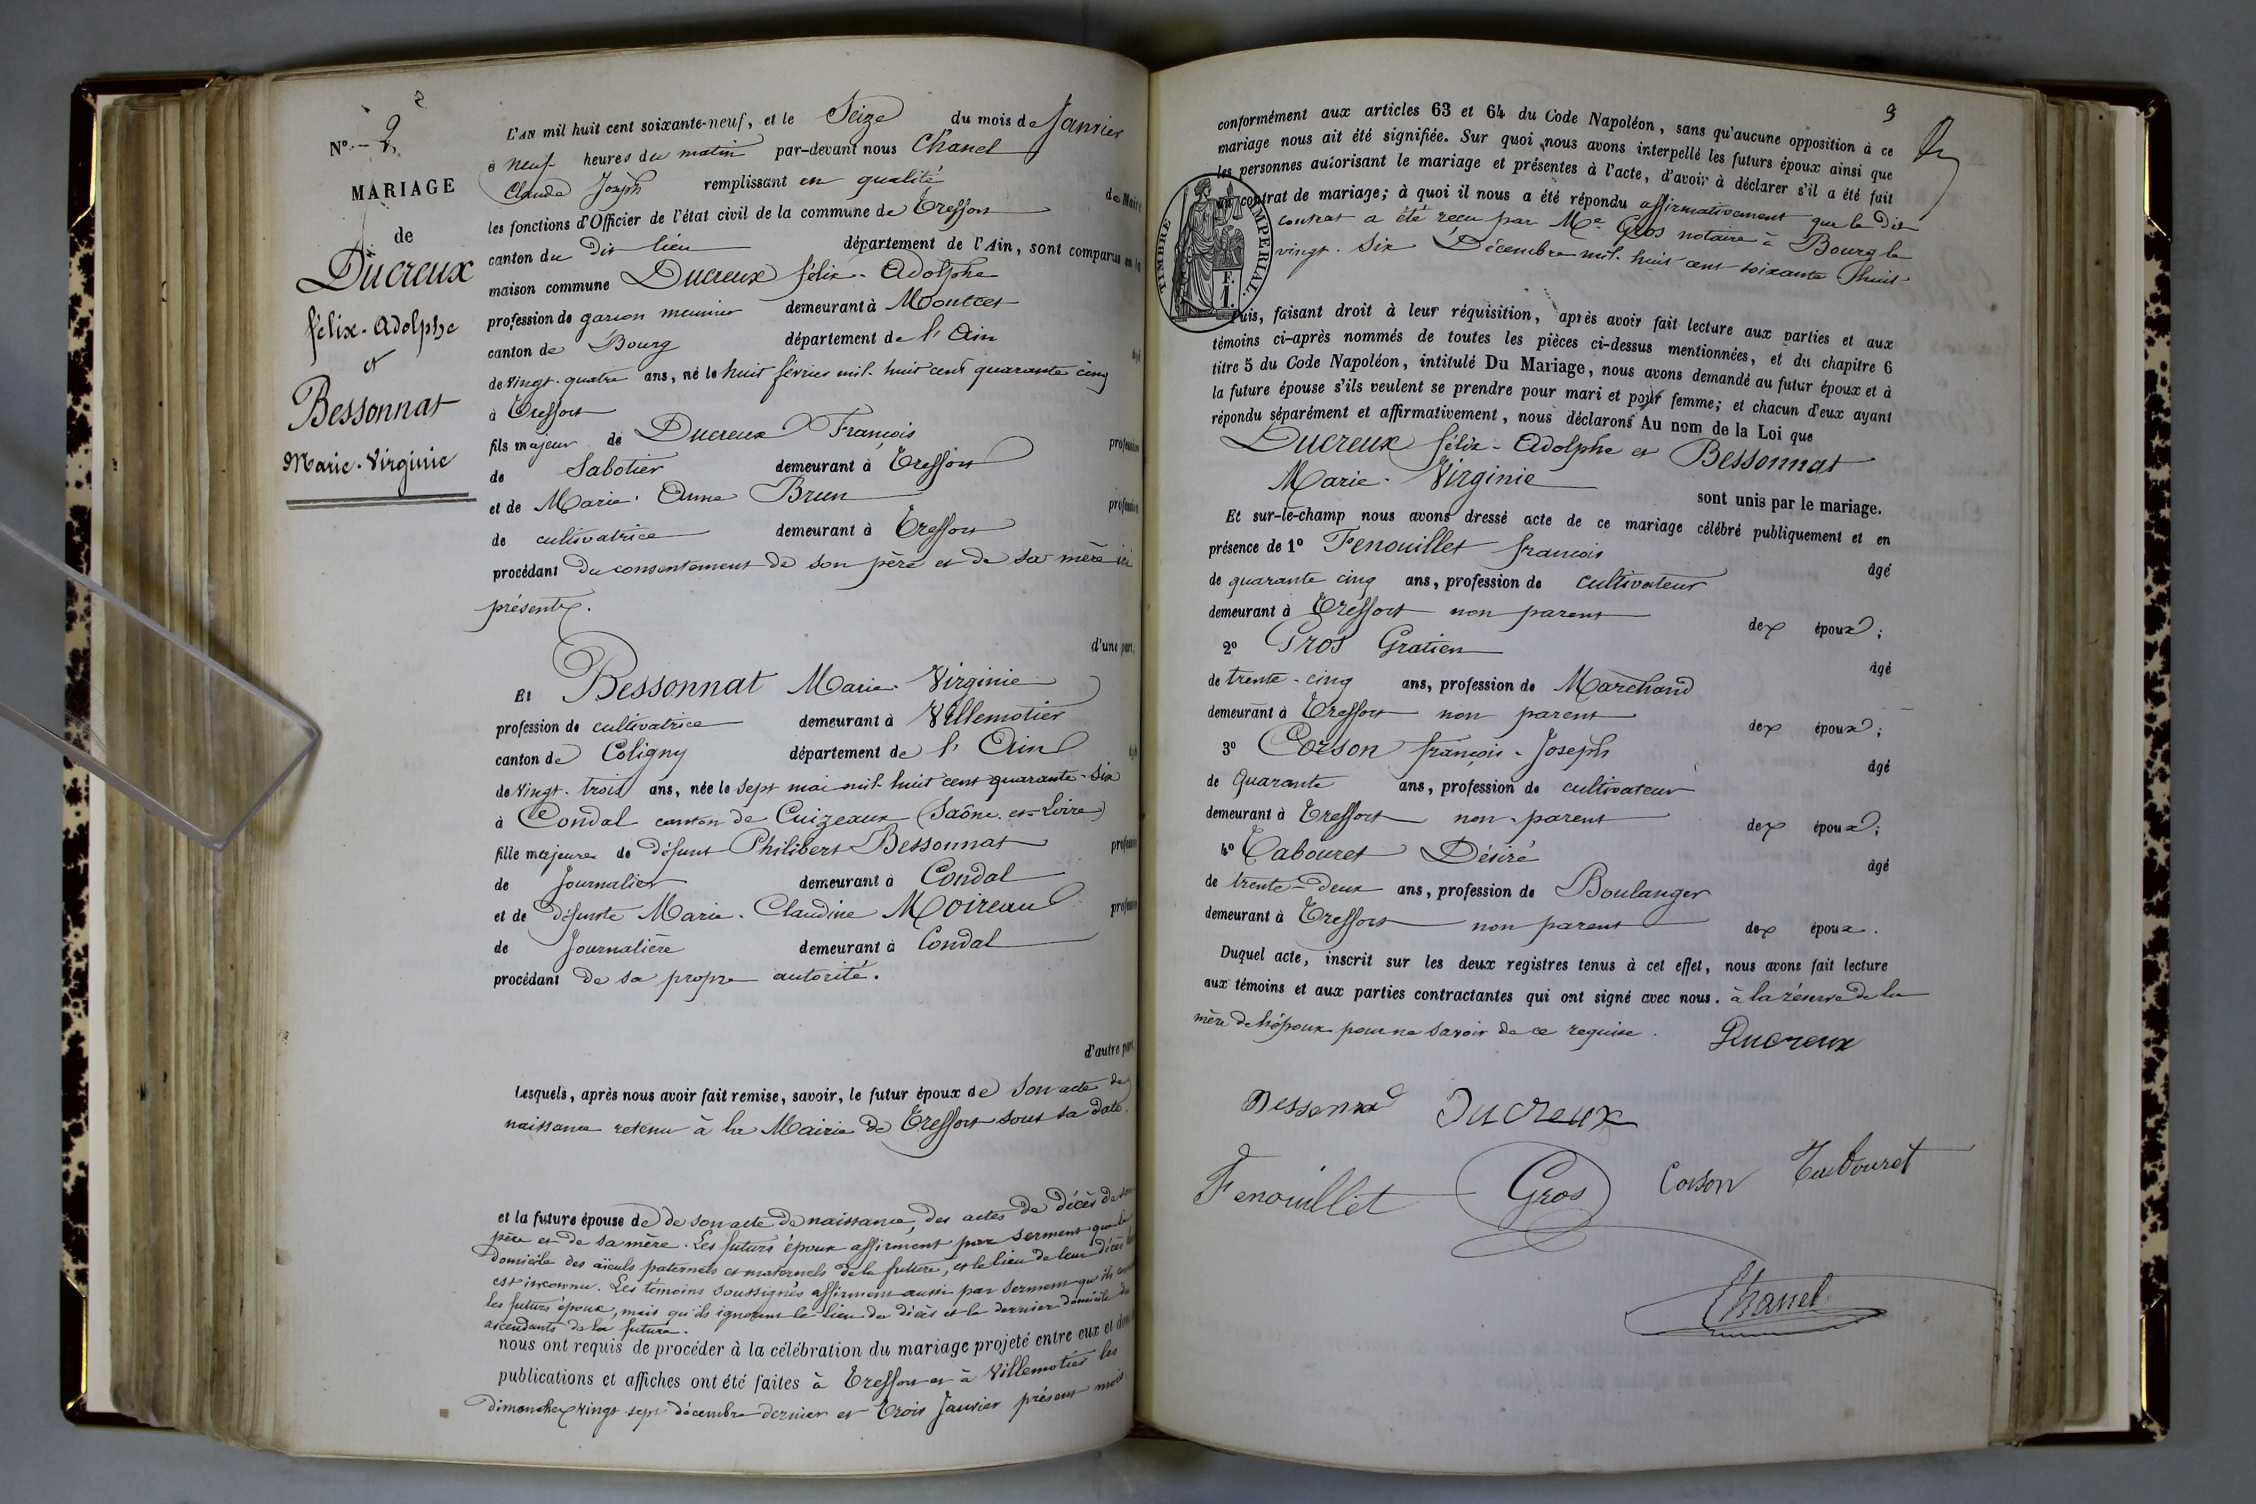 2
N° - 2.
MARIAGE
de
Ducreux
félix-Adolphe
et
Bessonnat
Marie-Virginie
L'AN mil huit cent soixante-neuf, et le Seize du mois de Janvier
à neuf heures du matin par-devant nous Chanel
Claude Joseph remplissant en qualité de Maire
les fonctions d'Officier de l'état civil de la commune de Treffort
canton du dit lieu département de l'Ain, sont comparus en la
maison commune Ducreux félix-Adolphe
profession de garson meunier demeurant à Montcet
canton de Bourg département de l'Ain âgé
de vingt-quatre ans, né le huit février mil-huit cent quarante cinq
à Treffort
fils majeur de Ducreux François profession
de Sabotier demeurant à Treffort
et de Marie-Anne Brun profession
de cultivatrice demeurant à Treffort
procédant du consentement de son père et de sa mère ici
présents.
d'une part,
Et Bessonnat Marie-Virginie
profession de cultivatrice demeurant à Villemotier
canton de Coligny département de l'Ain âgée
de vingt-trois ans, née le sept mai mil-huit cent quarante-six
à Condal canton de Cuizeaux (Saône-et-Loire)
fille majeure de défunt Philibert Bessonnat profession
de Journalier demeurant à Condal
et de défunte Marie-Claudine Moireaud profession
de Journalière demeurant à Condal
procédant de sa propre autorité.
d'autre part,
Lesquels, après nous avoir fait remise, savoir, le futur époux de son acte de
naissance retenu à la Mairie de Treffort sous sa date.
et la future épouse de de son acte de naissance, des actes de décès de son
père et de sa mère. Les futurs époux affirment par serment que le
domicile des aïeuls paternels et maternels de la future, et le lieu de leur décès
est inconnu. Les témoins soussignés affirment aussi par serment qu'ils
les futurs époux, mais qu'ils ignorent le lieu du décès et le dernier domicile des
ascendants de la future.
nous ont requis de procéder à la célébration du mariage projeté entre eux et dont
publications et affiches ont été faites à Treffort et à Villemotier les
dimanches vingt sept décembre dernier et trois Janvier présent mois
3
conformément aux articles 63 et 64 du Code Napoléon, sans qu'aucune opposition à ce
mariage nous ait été signifiée. Sur quoi nous avons interpellé les futurs époux ainsi que
les personnes autorisant le mariage et présentes à l'acte, d'avoir à déclarer s'il a été fait
un contrat de mariage; à quoi il nous a été répondu affirmativement que le dit
contrat a été reçu par Me Gros notaire à Bourg le
vingt-six Décembre mil-huit cent soixante huit
TIMBRE IMPÉRIAL.
F.
1.
Puis, faisant droit à leur réquisition, après avoir fait lecture aux parties et aux
témoins ci-après nommés de toutes les pièces ci-dessus mentionnées, et du chapitre 6
titre 5 du Code Napoléon, intitulé Du Mariage, nous avons demandé au futur époux et à
la future épouse s'ils veulent se prendre pour mari et pour femme; et chacun d'eux ayant
répondu séparément et affirmativement, nous déclarons Au nom de la Loi que
Ducreux félix-Adolphe et Bessonnat
Marie-Virginie sont unis par le mariage.
Et sur-le-champ nous avons dressé acte de ce mariage célébré publiquement et en
présence de 1° Fenouillet françois âgé
de quarante cinq ans, profession de cultivateur
demeurant à Treffort non parent des époux;
2° Gros Gratien âgé
de trente-cinq ans, profession de Marchand
demeurant à Treffort non parent des époux;
3° Corson françois-Joseph âgé
de quarante ans, profession de cultivateur
demeurant à Treffort non-parent des époux;
4° Tabouret Désiré âgé
de trente-deux ans, profession de Boulanger
demeurant à Treffort non parent des époux.
Duquel acte, inscrit sur les deux registres tenus à cet effet, nous avons fait lecture
aux témoins et aux parties contractantes qui ont signé avec nous. à la réserve de la
mère de l'époux pour ne savoir de ce requise.
Ducreux
Bessonnat Ducreux
Fenouillet Gros Corson Tabouret
Chanel